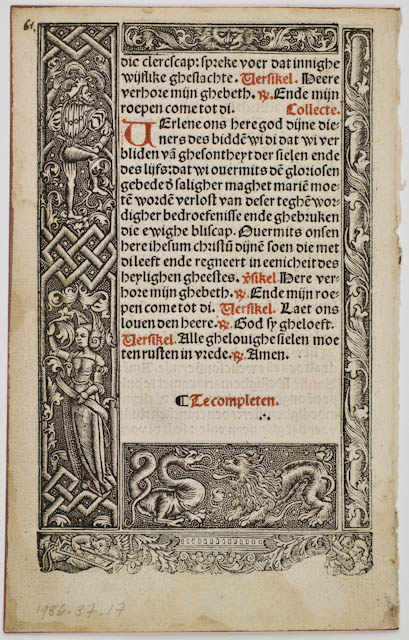 61
die clerscap: spreke voer dat innighe
wijflike gheslachte. Versikel. Heere
verhore mijn ghebeth. ℟. Ende mijn
roepen come tot di. Collecte.
VErlene ons here god dijne die-
ners des biddē wi di dat wi ver
bliden vā ghesontheyt der sielen ende
des lijfs: dat wi ouermits dē gloriosen
gebede ō saligher maghet mariē moe-
tē wordē verlost van deser teghēwor-
digher bedroefenisse ende ghebruken
die ewighe bliscap. Ouermits onsen
here ihesum christū dijnē soen die met
di leeft ende regneert in eenicheit des
heylighen gheestes. v̄sikel. Here ver-
hore mijn ghebeth. ℟. Ende mijn roe-
pen come tot di. Versikel. Laet ons
louen den heere. ℟. God sy gheloeft.
Versikel. Alle ghelouighe sielen moe
ten rusten in vrede. ℟. Amen.
¶ Te completen.
1986.37.17